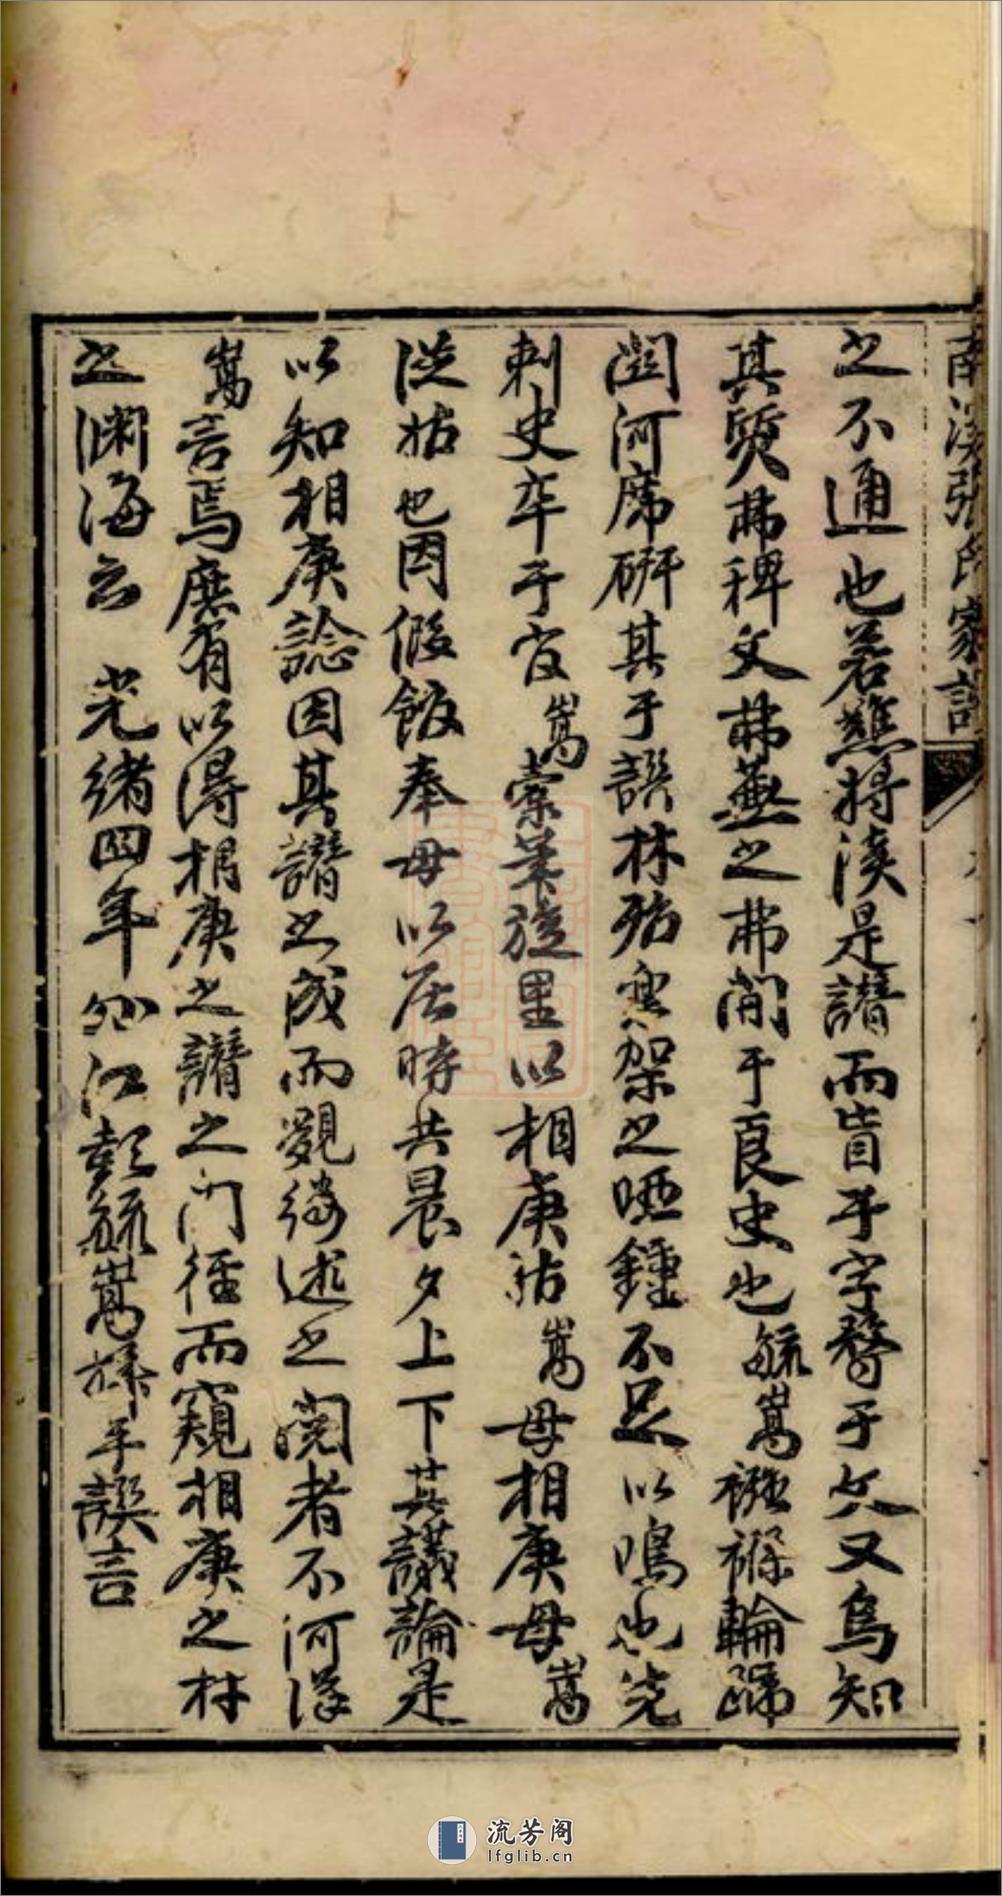 南溪張氏家譜
之不通也若蘸將淡是譜而昔乎字醫于文又烏知
其質弗稗文弗蕪之弗間于良史也毓嵩襁褓輪蹄
間河席研其于譔林殆寒架之啞鍾不足以鳴也先
刺史卒于官嵩棄業旋里以相庚姑嵩母相庚母嵩
從姑也因假飯奉母以居時共晨夕上下其議論是
以知相庚諗因其譜之成而覶縷述之閱者不河漢
嵩言焉庶有以得相庚之譜之門徑而窺相庚之材
之淵海云 光緒四年 江彭毓嵩拜手譔言
流芳阁
lfglib.cn